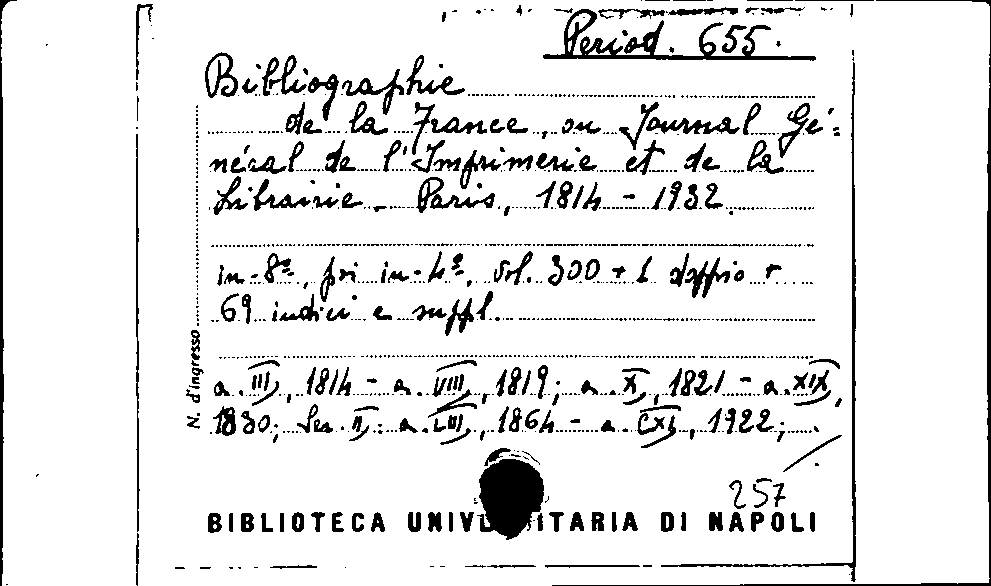 Period. 655.
Bibliographie
de la France, ou Journal Gé=
néral de l'Imprimerie et de la
Librairie. Paris, 1814 - 1932.
in-8º, poi in-4º, vol. 300 + 1 doppio +
69 indici e suppl.
a. III, 1814 - a. VIII, 1819; a. X, 1821 - a. XIX,
1830; Ser. II: a. LIII, 1864 - a. CXI, 1922;
N. d'ingresso
257
BIBLIOTECA UNIV ITARIA DI NAPOLI